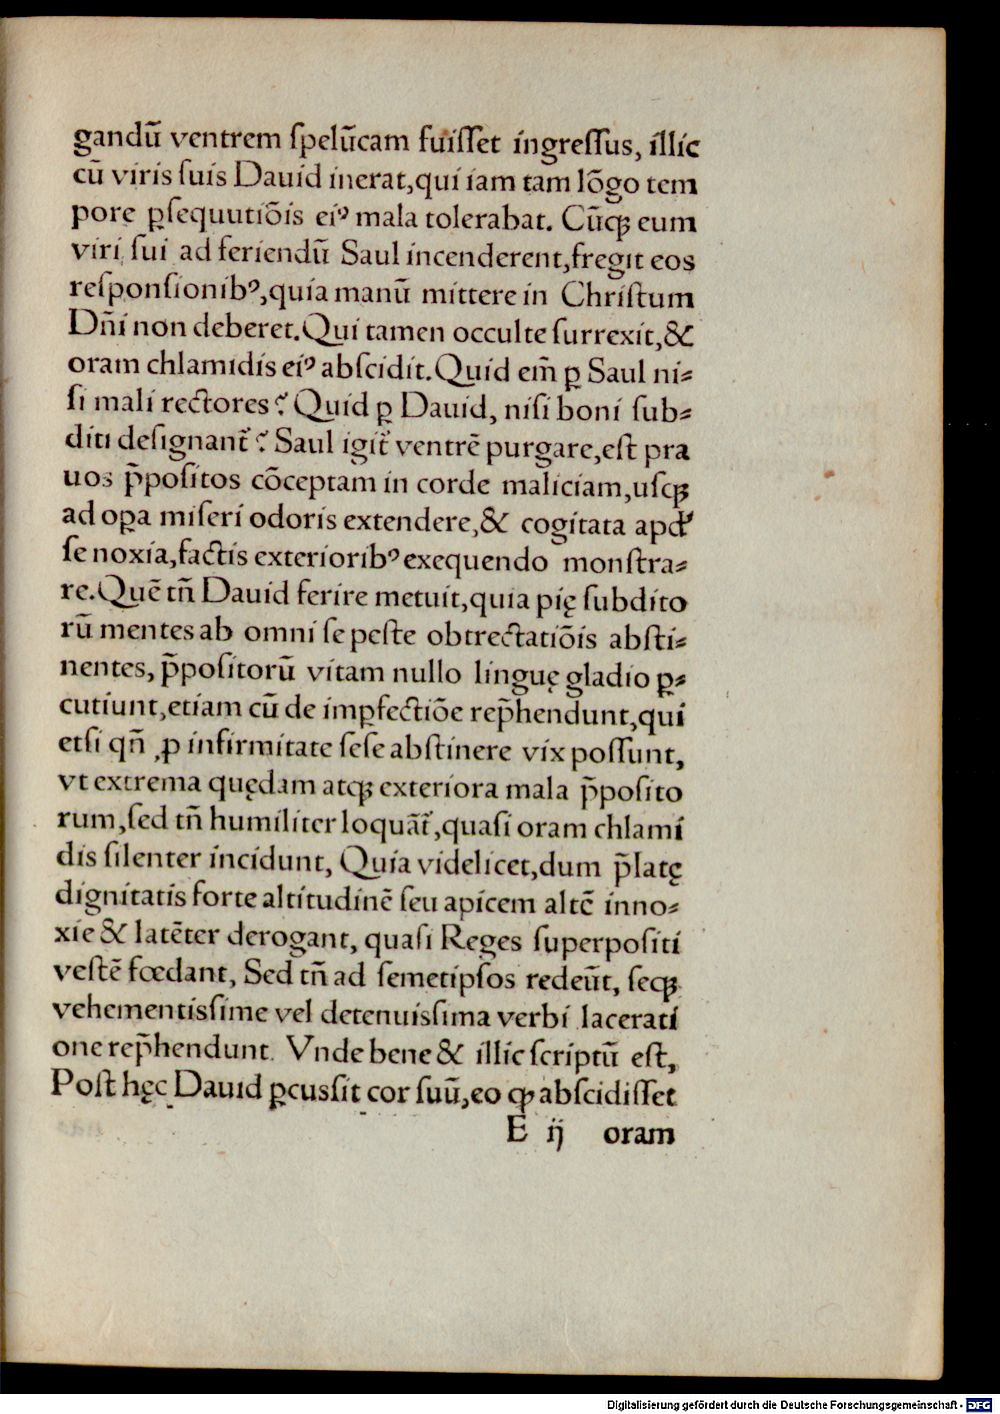 gandū ventrem ſpelūcam fuiſſet ingreſſus, illic
cū viris ſuis Dauid inerat,qui iam tam lōgo tem
pore ꝑſequutiōis eiꝰ mala tolerabat. Cūqꝫ eum
viri ſui ad feriendū Saul incenderent,fregit eos
reſponſionibꝰ,quia manū mittere in Chriſtum
Dn̄i non deberet.Qui tamen occulte ſurrexit,&
oram chlamidis eiꝰ abſcidit.Quid em̄ ꝑ Saul ni⸗
ſi mali rectores? Quid ꝑ Dauid, niſi boni ſub⸗
diti deſignant̃? Saul igit̃ ventrē purgare,eſt pra
uos p̄poſitos cōceptam in corde maliciam,uſqꝫ
ad oꝑa miſeri odoris extendere,& cogitata apď
ſe noxia,factis exterioribꝰ exequendo monſtra⸗
re.Quē tn̄ Dauid ferire metuit,quia pię ſubdito
rū mentes ab omni ſe peſte obtrectatiōis abſti⸗
nentes, p̄poſitorū vitam nullo linguę gladio ꝑ⸗
cutiunt,etiam cū de imꝑfectiōe rep̄hendunt,qui
etſi qn̄ ꝓ infirmitate ſeſe abſtinere vix poſſunt,
vt extrema quędam atqꝫ exteriora mala p̄poſito
rum,ſed tn̄ humiliter loquāt̃,quaſi oram chlami
dis ſilenter incidunt, Quia videlicet,dum p̄latę
dignitatis forte altitudinē ſeu apicem altē inno⸗
xie & latēter derogant, quaſi Reges ſuperpoſiti
veſtē fœdant, Sed tn̄ ad ſemetipſos redeūt, ſeqꝫ
vehementiſſime vel detenuiſſima verbi lacerati
one rep̄hendunt. Vnde bene & illic ſcriptū eſt,
Poſt hęc Dauid ꝑcuſſit cor ſuū,eo ꝙ abſcidiſſet
E ij oram
Digitalisierung gefördert durch die Deutsche Forschungsgemeinschaft - DFG